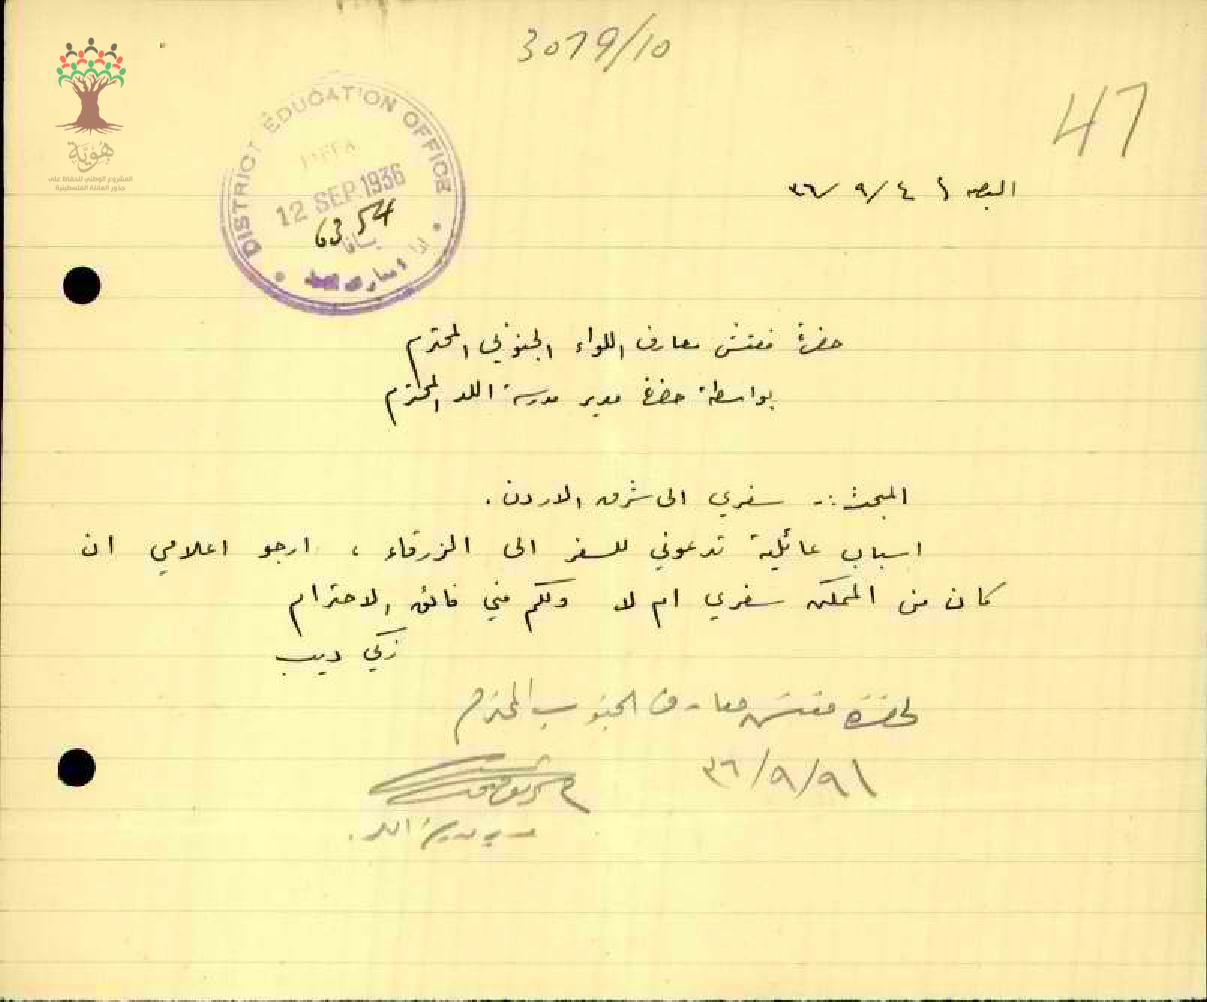 3079/10
47
DISTRICT EDUCATION OFFICE
JAFFA
12 SEP. 1936
6354
يافا
هوية
المشروع الوطني للحفاظ على
جذور العائلة الفلسطينية
٣٦/٩/٤
حضرة مفتش معارف اللواء الجنوبي المحترم
بواسطة حضرة مدير مدرسة اللد المحترم
المبحث :- سفري الى شرق الاردن .
اسباب عائلية تدعوني للسفر الى الزرقاء ، ارجو اعلامي ان
كان من الممكن سفري ام لا ولكم مني فائق الاحترام
زكي ديب
لحضرة مفتش معارف الجنوب المحترم
٣٦/٩/٩
مدير مدرسة اللد .